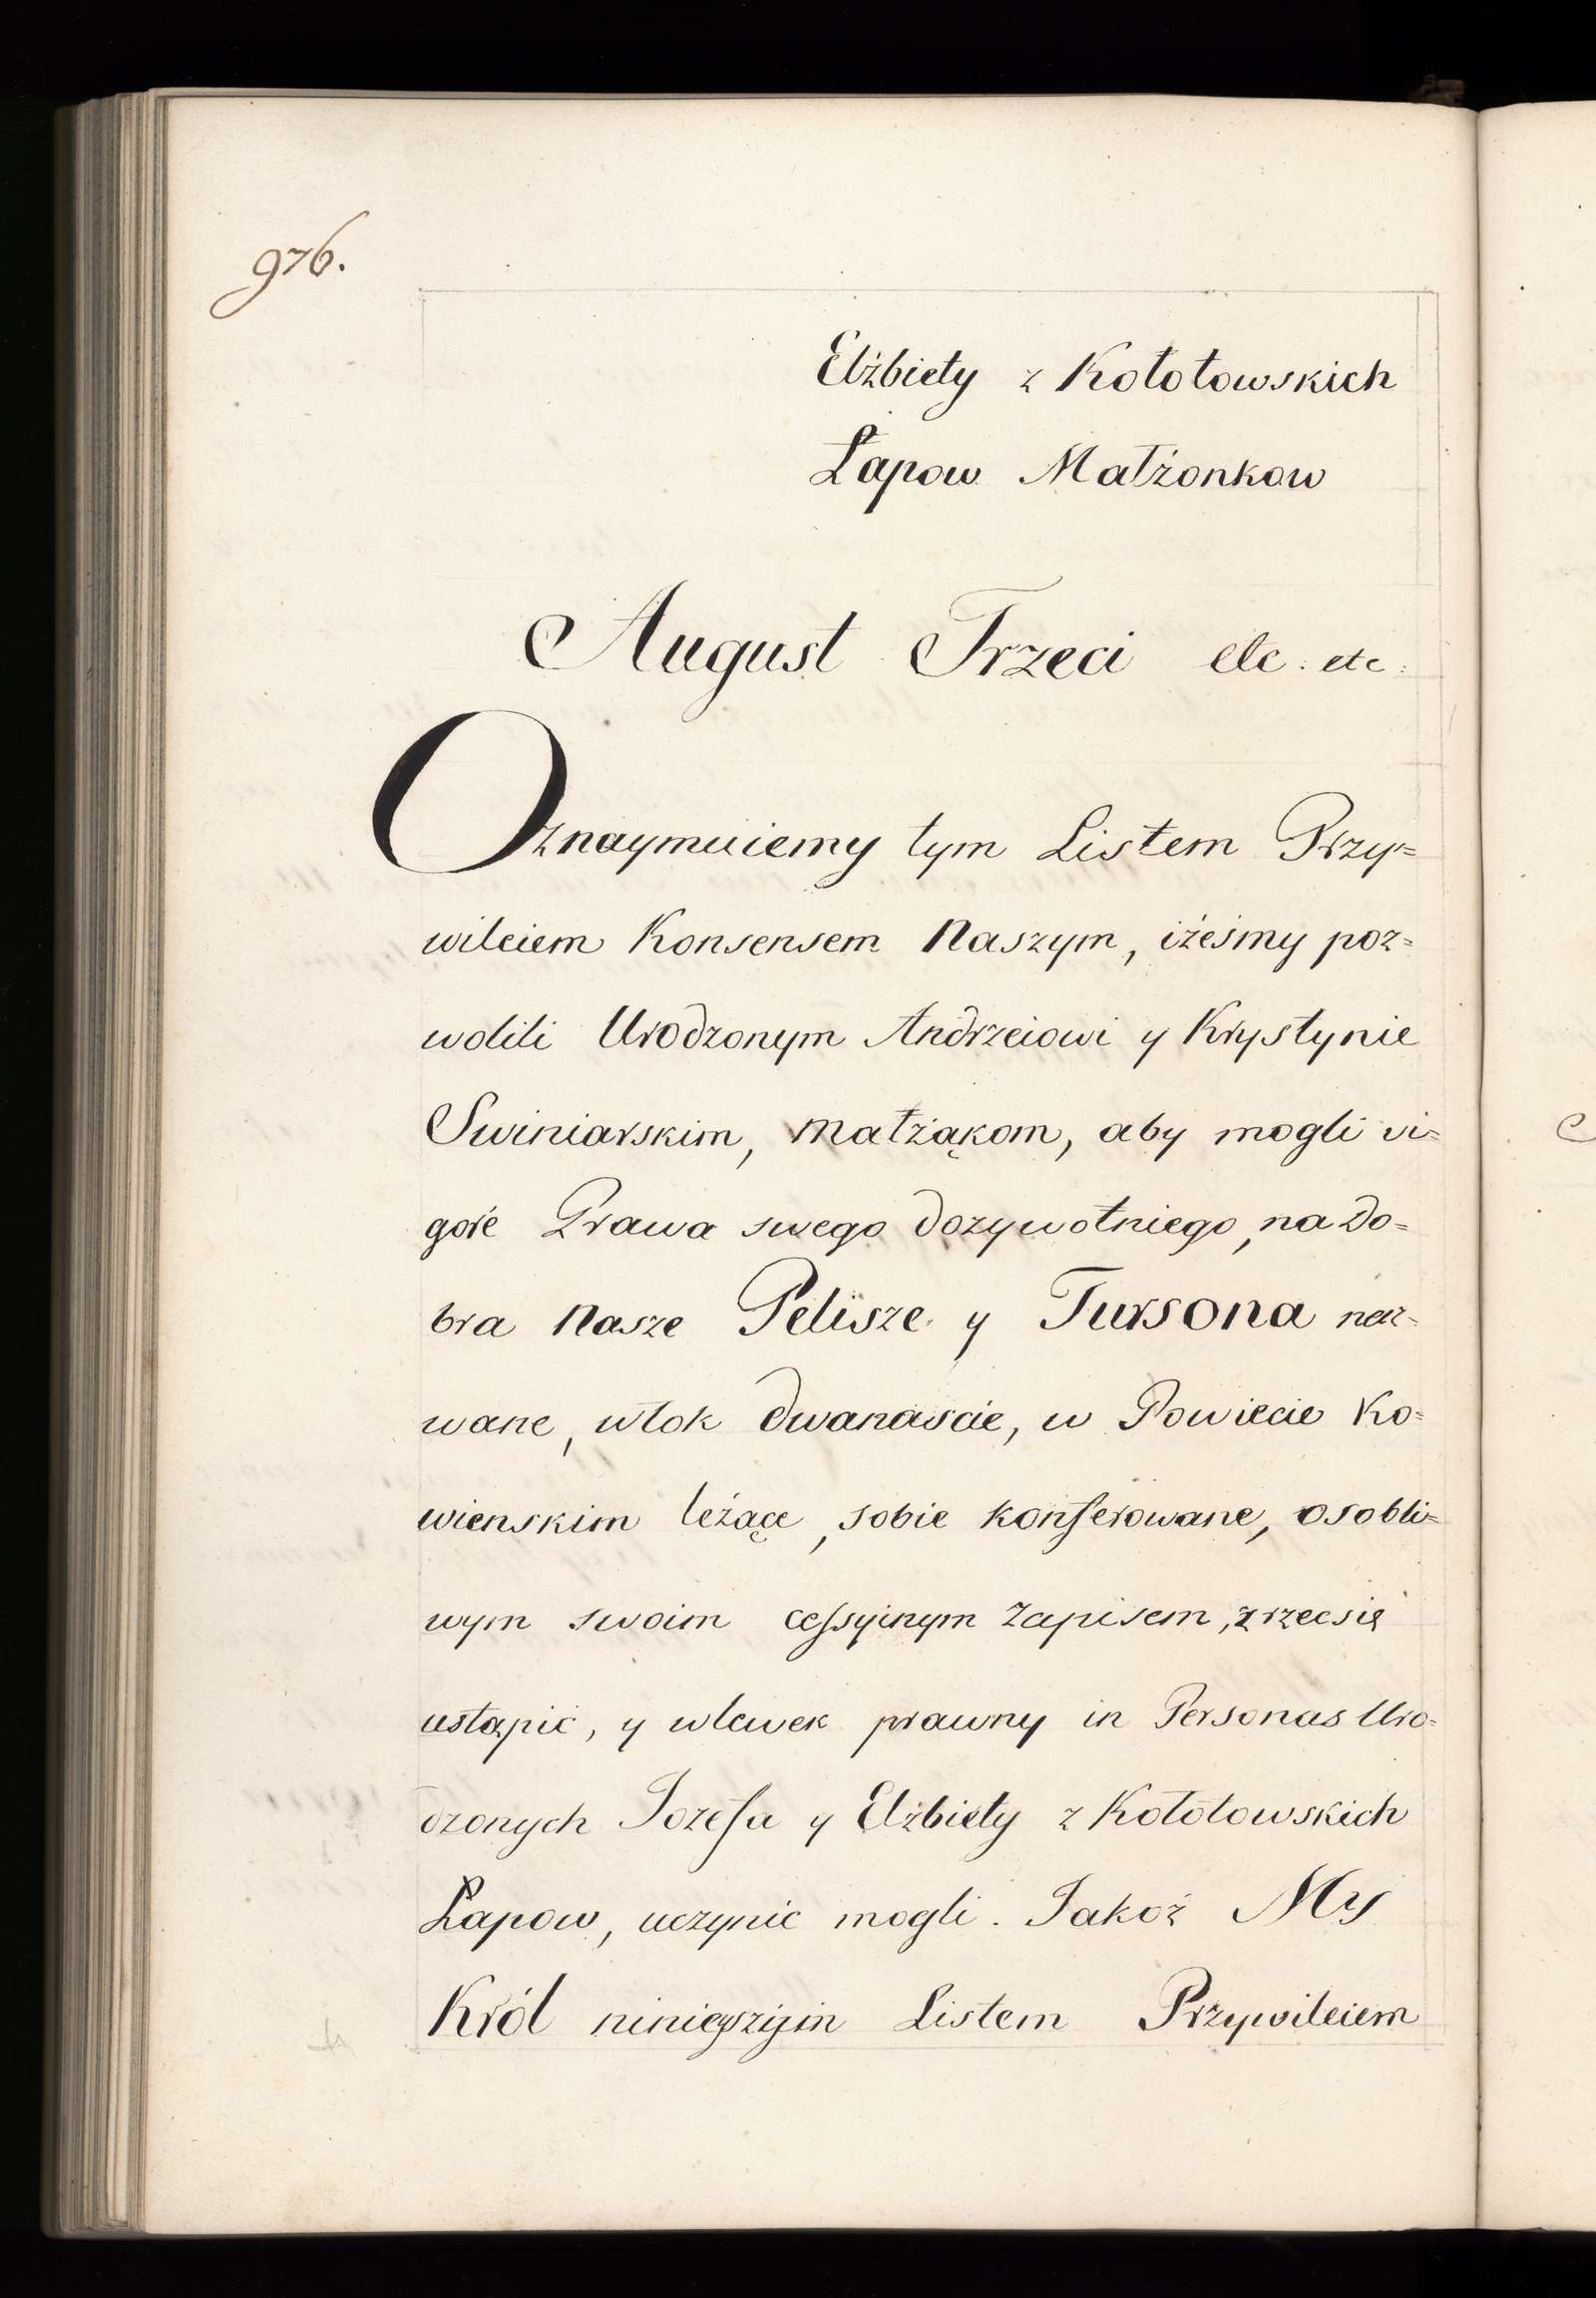 976.
Elżbiety z Kołołowskich
Łapow Małżonkow
August Trzeci etc: etc:
Oznaymuiemy tym Listem Przy=
wileiem Konsensem Naszym, iżeśmy poz=
wolili Urodzonym Andrzeiowi y Krystynie
Swiniarskim, małżąkom, aby mogli vi=
gore Prawa swego dozywotniego, na do=
bra Nasze Pelisze y Tursona naz=
wane, włok dwanascie, w Powiecie Ko=
wienskim leżące, sobie konferowane, osobli=
wym swoim cessyinym zapisem, zrzec się
ustąpić, y wlewek prawny in Personas Uro=
dzonych Jozefa y Elżbiety z Kołołowskich
Łapow, uczynic mogli. Jakoż My
Król ninieyszym Listem Przywileiem